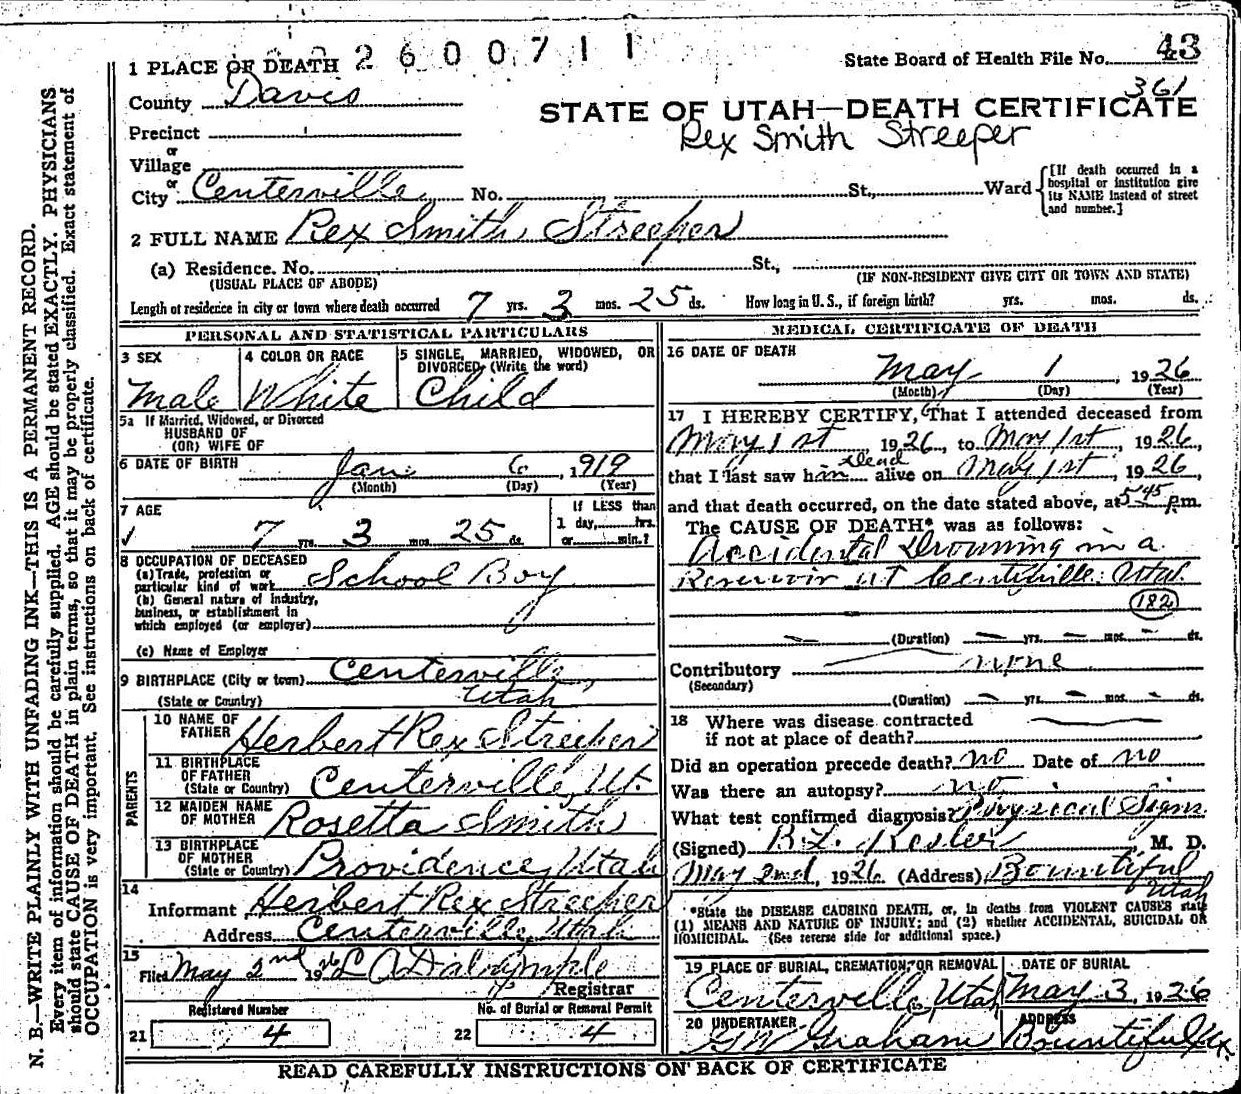 2600711
State Board of Health File No. 43
361
1 PLACE OF DEATH
County Davis
STATE OF UTAH—DEATH CERTIFICATE
Precinct
Rex Smith Streeper
or
Village
or
City Centerville No. St., Ward
[If death occurred in a hospital or institution give its NAME instead of street and number.]
2 FULL NAME Rex Smith Streeper
(a) Residence. No. St.,
(USUAL PLACE OF ABODE) (IF NON-RESIDENT GIVE CITY OR TOWN AND STATE)
Length of residence in city or town where death occurred 7 yrs. 3 mos. 25 ds. How long in U. S., if foreign birth? yrs. mos. ds.
PERSONAL AND STATISTICAL PARTICULARS
3 SEX Male
4 COLOR OR RACE White
5 SINGLE, MARRIED, WIDOWED, OR DIVORCED (Write the word) Child
5a If Married, Widowed, or Divorced
HUSBAND OF
(OR) WIFE OF
6 DATE OF BIRTH Jan 6, 1919
(Month) (Day) (Year)
7 AGE
7 yrs. 3 mos. 25 ds.
If LESS than
1 day, hrs.
or min.?
8 OCCUPATION OF DECEASED
(a) Trade, profession or
particular kind of work School Boy
(b) General nature of industry,
business, or establishment in
which employed (or employer)
(c) Name of Employer
9 BIRTHPLACE (City or town) Centerville,
(State or Country) Utah
PARENTS
10 NAME OF
FATHER Herbert Rex Streeper
11 BIRTHPLACE
OF FATHER
(State or Country) Centerville, Ut.
12 MAIDEN NAME
OF MOTHER Rosetta Smith
13 BIRTHPLACE
OF MOTHER
(State or Country) Providence, Utah
14
Informant Herbert Rex Streeper
Address Centerville, Utah
15
Filed May 2nd 1926 L A Dalrymple
Registrar
Registered Number
21 4
No. of Burial or Removal Permit
22 4
MEDICAL CERTIFICATE OF DEATH
16 DATE OF DEATH
May 1, 1926
(Month) (Day) (Year)
17 I HEREBY CERTIFY, That I attended deceased from
May 1st 1926, to May 1st, 1926,
Dead
that I last saw him alive on May 1st, 1926,
and that death occurred, on the date stated above, at 5 45 P.m.
The CAUSE OF DEATH* was as follows:
Accidental Drowning in a
Reservoir at Centerville Utah.
182
(Duration) yrs. mos. ds.
Contributory none
(Secondary)
(Duration) yrs. mos. ds.
18 Where was disease contracted
if not at place of death?
Did an operation precede death? no Date of no
Was there an autopsy? no
What test confirmed diagnosis? Physical Signs
(Signed) B.L. Kesler, M. D.
May 2nd, 1926. (Address) Bountiful
Utah
*State the DISEASE CAUSING DEATH, or, in deaths from VIOLENT CAUSES state
(1) MEANS AND NATURE OF INJURY; and (2) whether ACCIDENTAL, SUICIDAL OR
HOMICIDAL. (See reverse side for additional space.)
19 PLACE OF BURIAL, CREMATION, OR REMOVAL
Centerville, Utah
DATE OF BURIAL
May 3, 1926
20 UNDERTAKER
GW Graham
ADDRESS
Bountiful, Ut
READ CAREFULLY INSTRUCTIONS ON BACK OF CERTIFICATE
N. B.—WRITE PLAINLY WITH UNFADING INK—THIS IS A PERMANENT RECORD.
Every item of information should be carefully supplied. AGE should be stated EXACTLY. PHYSICIANS
should state CAUSE OF DEATH in plain terms, so that it may be properly classified. Exact statement of
OCCUPATION is very important. See instructions on back of certificate.